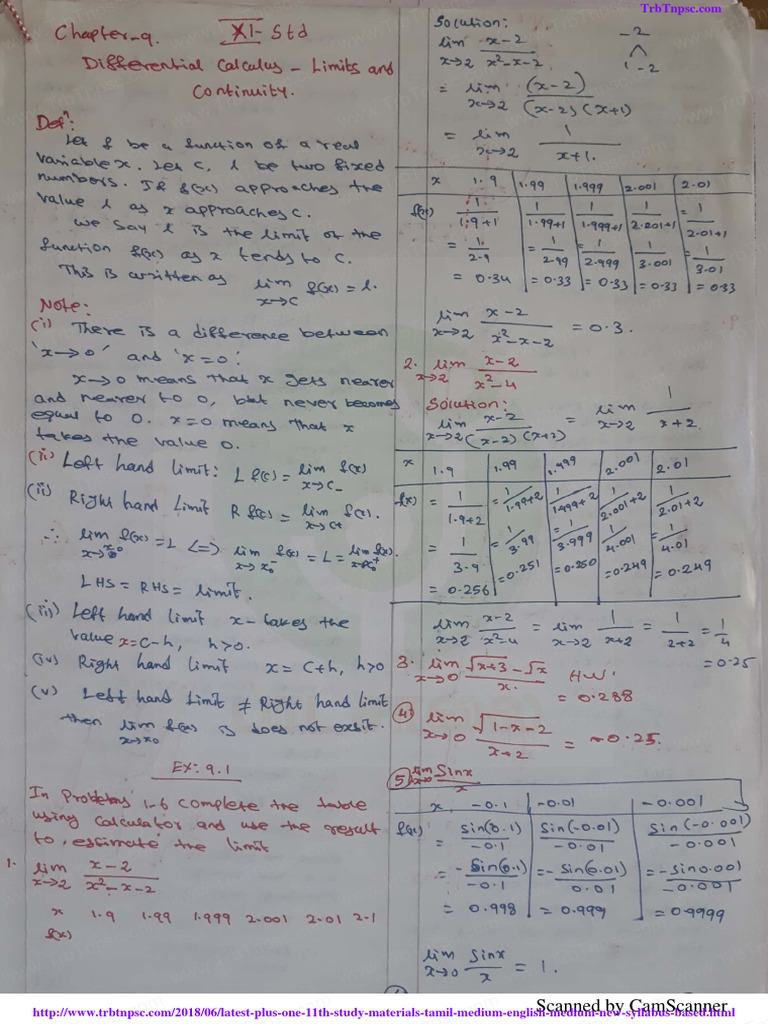 TrbTnpsc.com
Chapter-9. XI-Std
Differential Calculus - Limits and
Continuity.
Defn:
Let f be a function of a real
variable x. Let c, l be two fixed
numbers. If f(x) approaches the
value l as x approaches c.
we say l is the limit of the
function f(x) as x tends to c.
This is written as lim x→c f(x) = l.
Note:
(i) There is a difference between
'x→0' and 'x=0'.
x→0 means that x gets nearer
and nearer to 0, but never becomes
equal to 0. x=0 means that x
takes the value 0.
(ii) Left hand limit: L f(c) = lim x→c- f(x)
(ii) Right hand Limit R f(c) = lim x→c+ f(x).
∴ lim f(x) = L <=> lim x→x0- f(x) = L = lim f(x).
LHS = RHS = limit.
(iii) Left hand limit x- takes the
value x=c-h, h>0.
(iv) Right hand limit x = c+h, h>0
(v) Left hand Limit ≠ Right hand limit
then lim x→x0 f(x) is does not exsit.
EX: 9.1
In Problems 1-6 complete the table
using calculator and use the result
to, estimate the limit
1. lim x→2 x-2 / x²-x-2
x 1.9 1.99 1.999 2.001 2.01 2.1
f(x)
Solution:
lim x→2 x-2 / x²-x-2
-2
1 -2
= lim x→2 (x-2) / (x-2)(x+1)
= lim x→2 1 / x+1.
x 1.9 1.99 1.999 2.001 2.01
f(x) 1/1.9+1 1/1.99+1 1/1.999+1 1/2.001+1 = 1/2.01+1
= 1/2.9 = 1/2.99 = 1/2.999 = 1/3.001 = 1/3.01
= 0.34 = 0.33 = 0.33 = 0.33 = 0.33
lim x→2 x-2 / x²-x-2 = 0.3.
2. lim x→2 x-2 / x²-4
Solution:
lim x→2 x-2 / (x-2)(x+2) = lim x→2 1 / x+2.
x 1.9 1.99 1.999 2.001 2.01
f(x) = 1/1.9+2 = 1/1.99+2 1/1.999+2 1/2.001+2 1/2.01+2
= 1/3.9 = 1/3.99 = 1/3.999 1/4.001 = 1/4.01
= 0.256 = 0.251 = 0.250 = 0.249 = 0.249
lim x→2 x-2 / x²-4 = lim x→2 1 / x+2 = 1 / 2+2 = 1/4
= 0.25
3. lim x→0 √x+3 - √x / x. H.W.
= 0.288
4 lim x→0 √1-x-2 / x+2 = -0.25.
5 lim x→0 Sinx / x
x -0.1 -0.01 -0.001
f(x) = sin(0.1) / -0.1 Sin(-0.01) / -0.01 Sin(-0.001) / -0.001
= -Sin(0.1) / -0.1 = -Sin(0.01) / 0.01 = -Sin0.001 / -0.001
= 0.998 = 0.999 = 0.9999
lim x→0 Sinx / x = 1.
Scanned by CamScanner
http://www.trbtnpsc.com/2018/06/latest-plus-one-11th-study-materials-tamil-medium-english-medium-new-syllabus-based.html